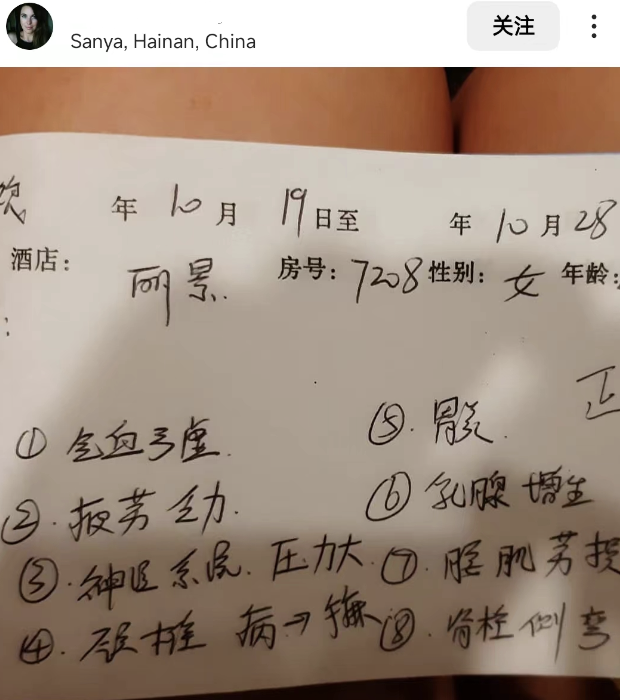 关注
Sanya, Hainan, China
年 10 月 19 日至 年 10 月 28
酒店: 丽景 房号: 7208 性别: 女 年龄:
① 气血亏虚. ⑤. 胃炎.
②. 疲劳乏力. ⑥ 乳腺增生
③. 神经系统. 压力大. ⑦. 腰肌劳损
④. 颈椎病 → ⑧. 脊柱侧弯